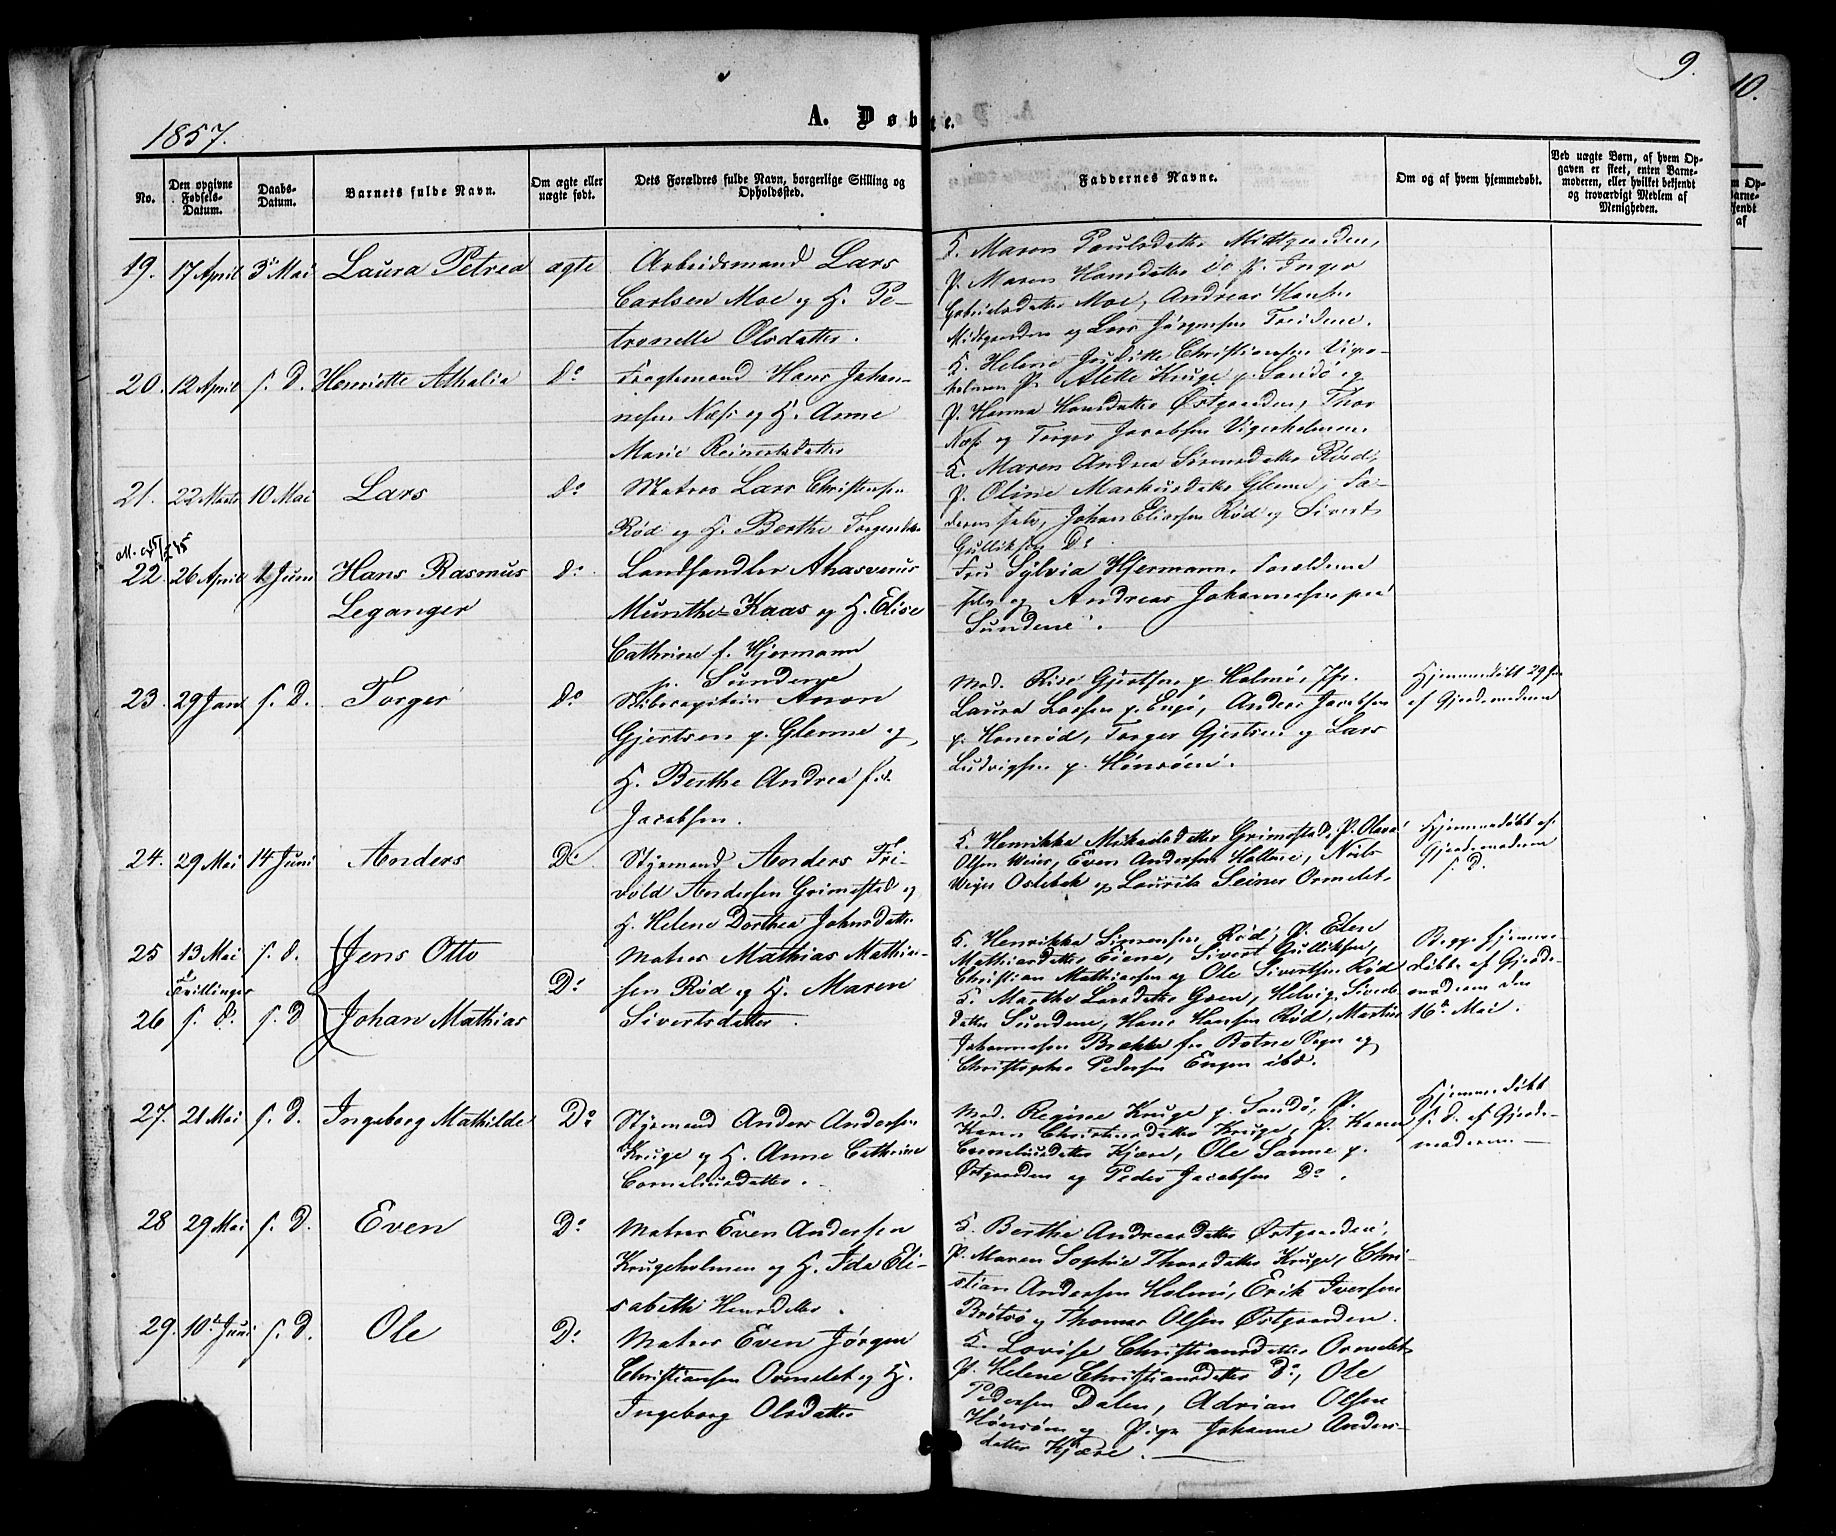 9.
10.
A. Døbte.
1857.
No.
Den opgivne Fødsels-Datum.
Daabs-Datum.
Barnets fulde Navn.
Om ægte eller uægte født.
Dets Forældres fulde Navn, borgerlige Stilling og Opholdssted.
Faddernes Navne.
Om og af hvem hjemmedøbt.
Ved uægte Børn, af hvem Opgaven er skeet, enten Barnemoderen, eller hvilket bekjendt og troværdigt Medlem af Menigheden.
19. 17 April 3' Mai Laura Petrea ægte Arbeidsmand Lars
Carlsen Moe og H. Pe-
tronelle Olsdatter.
K. Maren Paulsdatter Midtgaarden,
P. Maren Hansdatter Do P. Inger
Gabrielsdatter Moe, Andreas Hansen
Midtgaarden og Lars Jørgensen
20. 12 April s. D. Henriette Athalia do Fragtemand Hans Johan-
nesen Næs og H. Anne
Marie Reinertsdatter
K. Helene Christiansen
P. Alette Kruge p. Sandø og
P. Hanna Hansdatter Østgaarden, Thor
Næs og Torger Jacobsen
21. 22 Marts 10 Mai Lars do Matros Lars Christensen
Rød og H. Berthe
K. Maren Andrea Sørensdatter Rød,
P. Oline Markusdatter Glenne, Fa-
deren selv, Johan Eliassen Rød og Sivert
Gulliksen Do
22. 26 April 1 Juni Hans Rasmus do Landhandler Ahasverus
Leganger Munthe-Kaas og H. Elise
Cathrine f. Hjermann
p. Sundene
Fru Sylvia Hjermann, Forældrene
selv og Andreas Johannesen paa
Sundene.
23. 29 Jan s. D. Torger do Skibscapitein Aron
Gjertsen p. Glenne og
H. Berthe Andrea fød
Jacobsen.
Mad. Gjertsen p. Holmø, Jfr.
Laura Larsen p. Engø, Anders Jacobsen
p. Torger Gjertsen og Lars
Ludvigsen p. Hønsøen.
Hjemmedøbt 29 Jan
af Gjordemoderen
24. 29 Mai 14 Juni Anders Do Styrmand Anders Fri-
vold Andersen Grimestad og
H. Helene Dorthea Johnsdatter
K. Henrikke Mikaelsdatter Grimestad, P. Olava
Olsen Veier, Even Andersen Nils
og Lauritz Ormelet.
Hjemmedøbt af
Gjordemoderen
s. D.
25 13 Mai s. d. Jens Otto Matros Mathias Mathia-
Tvillinger Do sen Rød og H. Maren
26 s. D. s. D Johan Mathias Sivertsdatter.
K. Henrikke Simensen Rød, P. Elen
Mathiasdatter Sivert Gulliksen,
Christian Mathiasen og Ole Sivertsen Rød
K. Marthe Larsdatter Helvig Siverts
datter Sundene, Hans Hansen Rød, Martin
Johannesen Brække fra Botne Sogn og
Christopher Pedersen Engen ibd.
Begge hjemme-
døbte af Gjorde-
moderen den
16de Mai.
27. 21 Mai s. D. Ingeborg Mathilde Do Styrmand Anders Andersen
Kruge og H. Anne Cathrine
Corneliusdatter.
Mad. Regine Kruge p. Sandø, P.
Karen Christensdatter Kruge, P. Karen
Corneliusdatter Kjære, Ole Sanne p.
Østgaarden og Peder Jacobsen Do.
Hjemmedøbt
s. D. af Gjorde-
moderen
28 29 Mai s. D. Even Do Matros Even Andersen
Krugeholmen og H. Ida Eli-
sabeth Hansdatter.
K. Berthe Andreasdatter Østgaarden,
P. Maren Sophie Thorsdatter Kruge, Chri-
stian Andersen Holmø, Erik Iversen
Brøtsø og Thomas Olsen Østgaarden.
29. 10de Juni s. D. Ole Do Matros Even Jørgen
Christiansen Ormelet og H.
Ingeborg Olsdatter
K. Lovise Christiansdatter Ormelet
P. Helene Christiansdatter Do, Ole
Pedersen Dalen, Adrian Olsen
Hønsøen og Pige Johanne Anders-
datter Kjære.